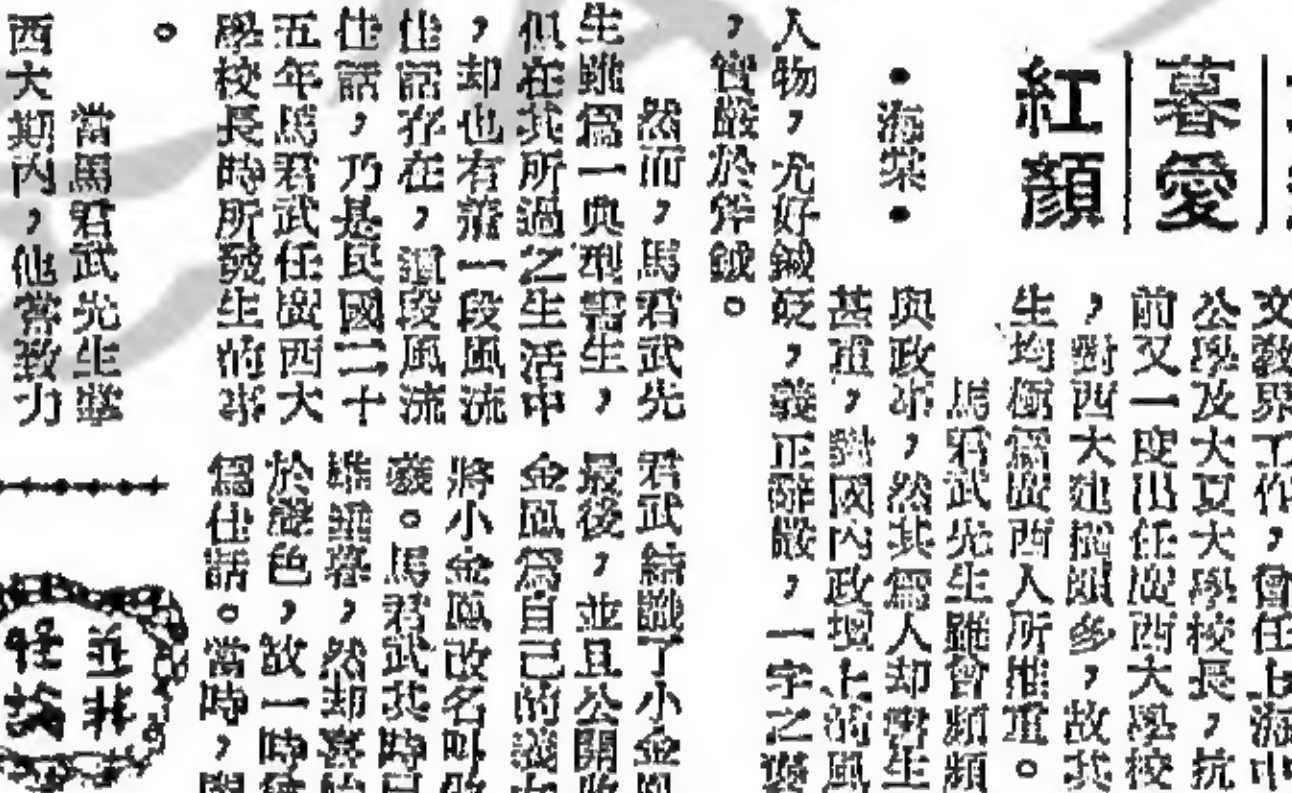 暮愛
紅顏
•海棠•
文教界工作，曾任上海中
公學及大夏大學校長，抗
前又一度出任廣西大學校
，對西大建樹頗多，故其
生均極為廣西人所推重。
馬君武先生雖曾頻頻
與政，然其為人却
甚重，國內政壇上的風
人物，尤好鍼砭，義正辭嚴，一字之
，實嚴於斧鉞。
然而，馬君武先
生雖爲一典型書生，
似在其所過之生活中
，却也有着一段風流
佳話存在，這段風流
佳話，乃是民國二十
五年馬君武任廣西大
學校長時所發生的事
。
當馬君武先生掌
西大期內，他常致力
君武結識了小金鳳
最後，並且公開收
金鳳爲自己的義女
將小金鳳改名叫
義。馬君武其時已
雖垂暮，然却喜
於談色，故一時
爲佳話。當時，